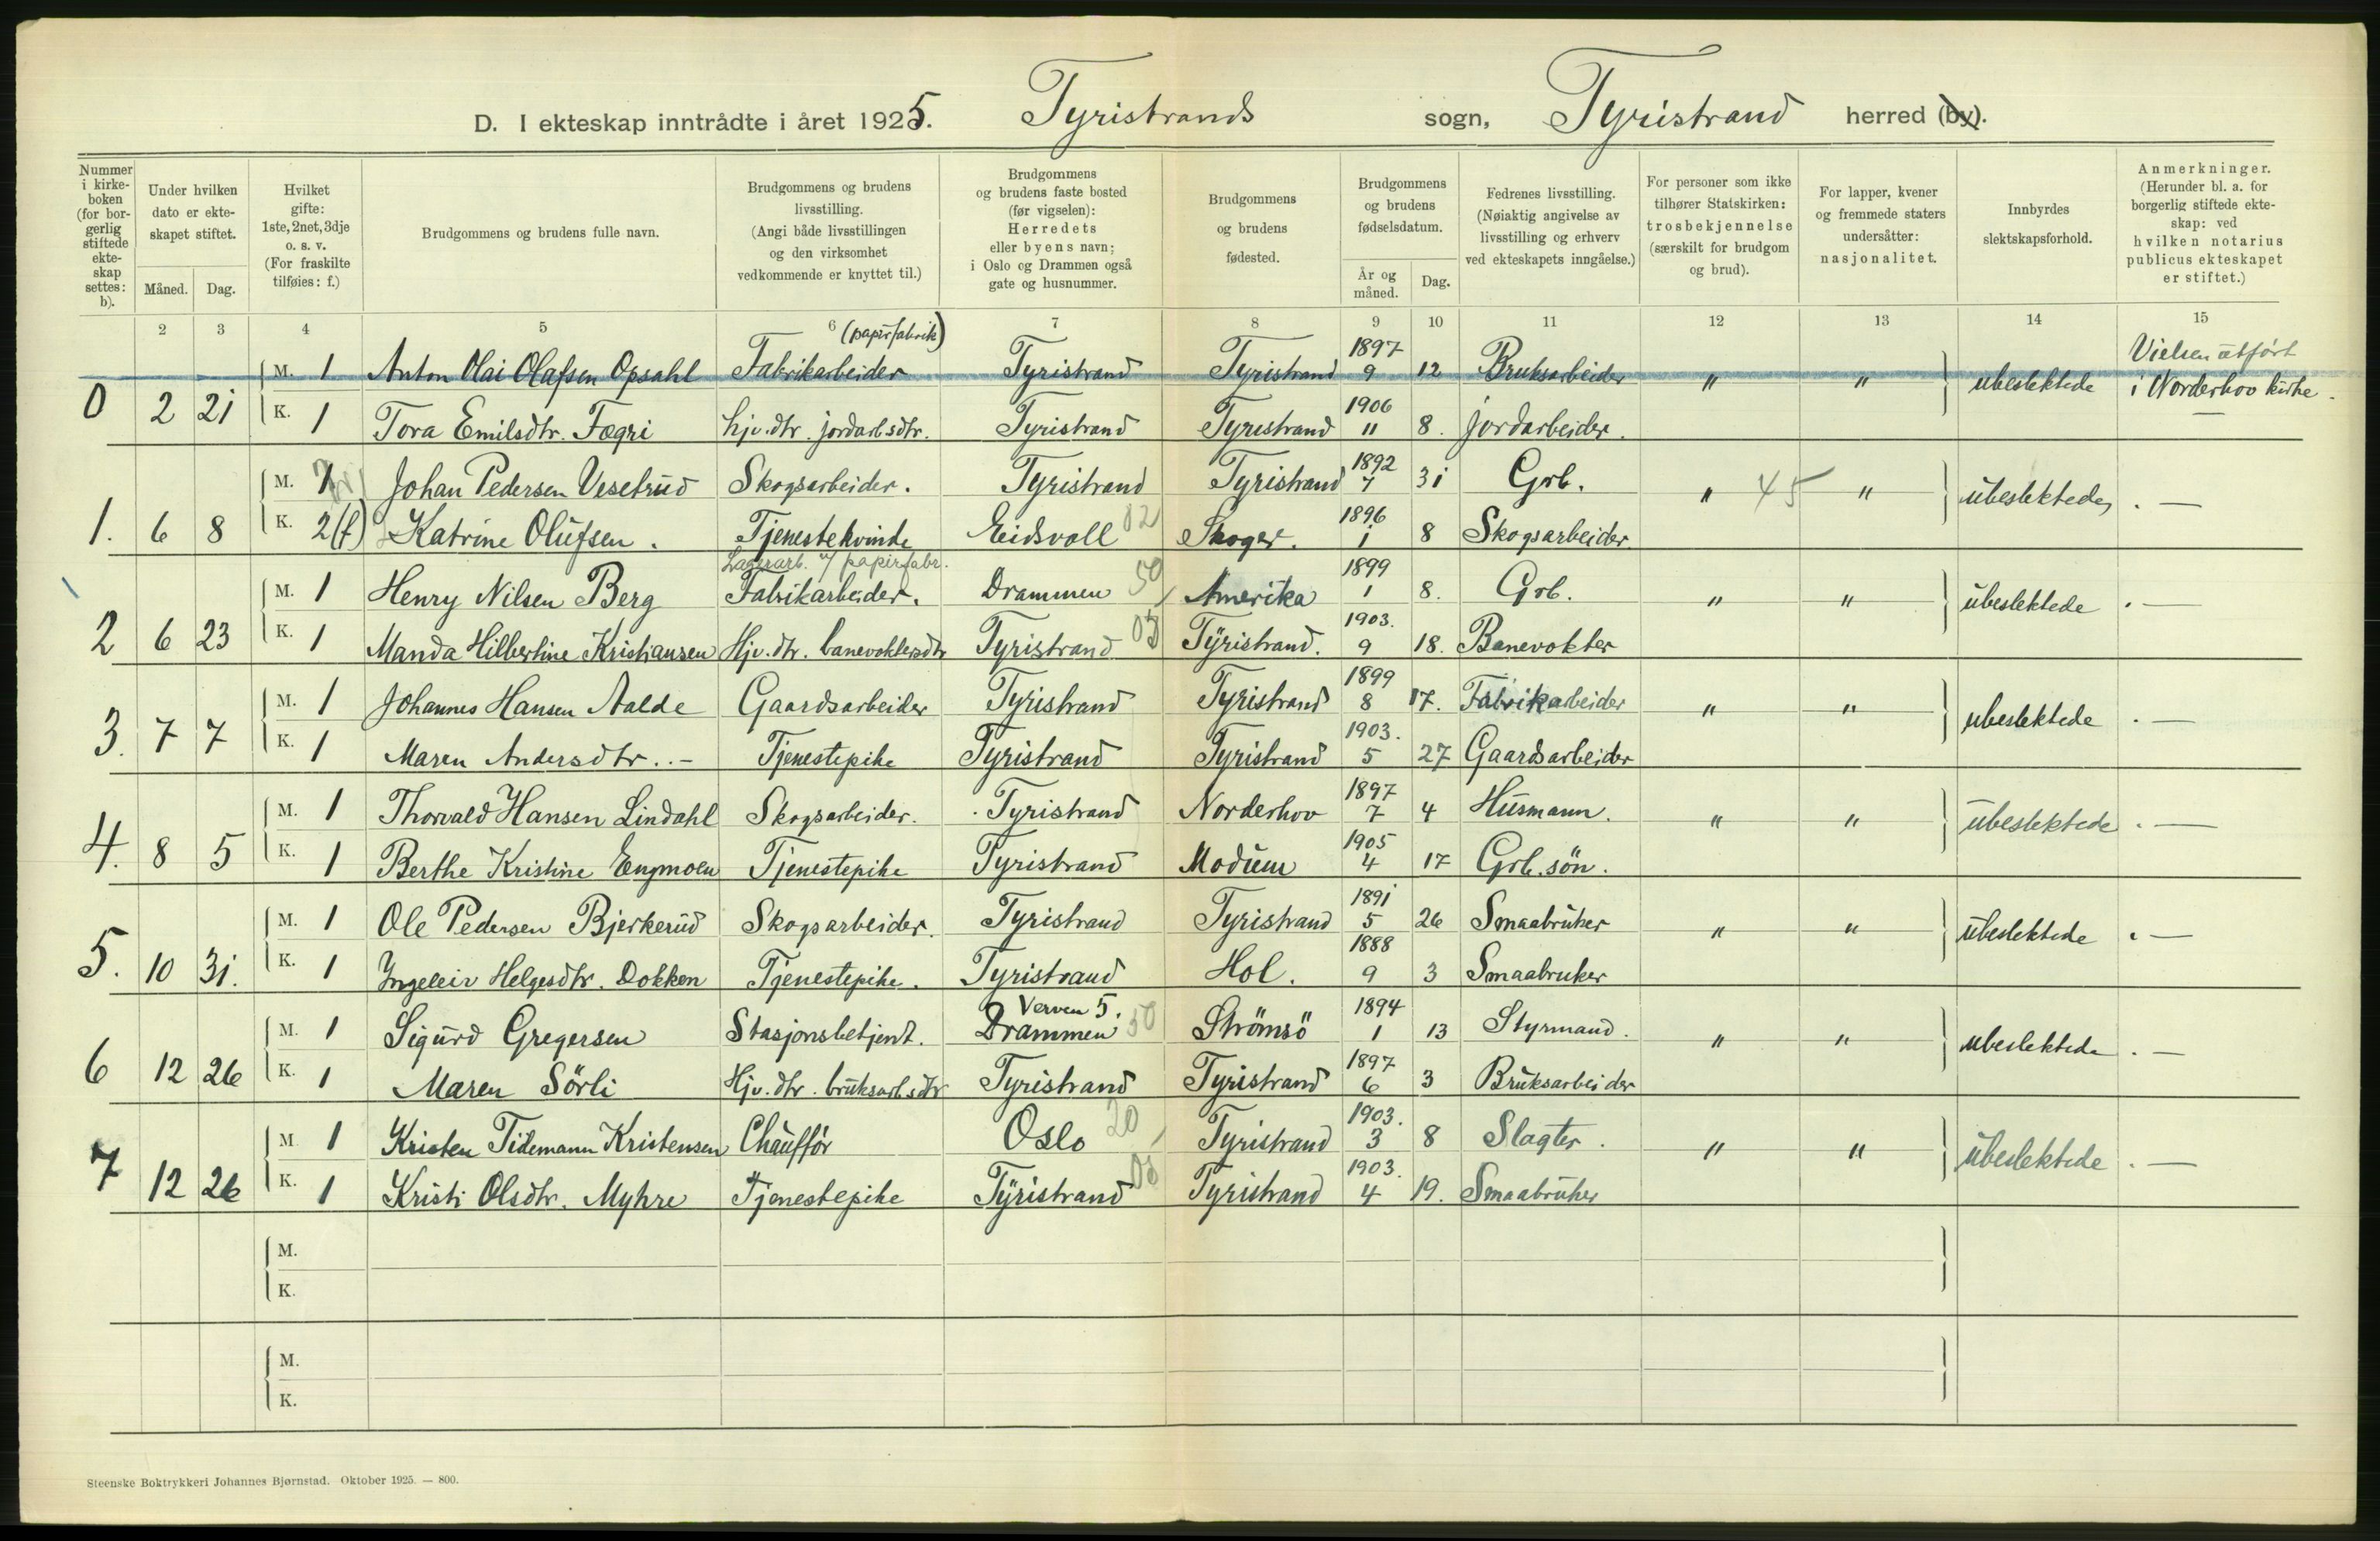 D. I ekteskap inntrådte i året 1925. Tyristrands sogn, Tyristrand herred (by).
Nummer i kirke-boken (for bor-gerlig stiftede ekte-skap settes: b).
Under hvilken dato er ekte-skapet stiftet.
Måned. Dag.
Hvilket gifte: 1ste, 2net, 3dje o. s. v. (For fraskilte tilføies: f.)
Brudgommens og brudens fulle navn.
Brudgommens og brudens livsstilling. (Angi både livsstillingen og den virksomhet vedkommende er knyttet til.)
Brudgommens og brudens faste bosted (før vigselen): Herredets eller byens navn; i Oslo og Drammen også gate og husnummer.
Brudgommens og brudens fødested.
Brudgommens og brudens fødselsdatum.
År og måned. Dag.
Fedrenes livsstilling. (Nøiaktig angivelse av livsstilling og erhverv ved ekteskapets inngåelse.)
For personer som ikke tilhører Statskirken: trosbekjennelse (særskilt for brudgom og brud).
For lapper, kvener og fremmede staters undersåtter: nasjonalitet.
Innbyrdes slektskapsforhold.
Anmerkninger. (Herunder bl. a. for borgerlig stiftede ekte-skap: ved hvilken notarius publicus ekteskapet er stiftet.)
2 3 4 5 6 7 8 9 10 11 12 13 14 15
(papirfabrik) 1897 Vielsen utført
M. 1 Anton Olai Olafsen Opsahl Fabrikarbeider Tyristrand Tyristrand 9 12 Bruksarbeider " " ubeslektede i Norderhov kirke.
0 2 21 K. 1 Tora Emilsdtr. Fægri hjv. dtr. jordarb.sdtr. Tyristrand Tyristrand 1906 11 8. jordarbeider. —
M. 1 Johan Pedersen Vesetrud Skogsarbeider. Tyristrand Tyristrand 1892 7 31 Grb. " 45 " ubeslektede, . —
1. 6 8 K. 2(f) Katrine Olufsen. Tjenestekvinde Eidsvoll 02 Skoger. 1896 1 8 Skogsarbeider.
Lagerarb. v/ papirfabr.
M. 1 Henry Nilsen Berg Fabrikarbeider. Drammen 50 Amerika 1899 1 8. Grb. " " ubeslektede . —
2 6 23 K. 1 Manda Hilbertine Kristiansen Hjv. dtr. banevoktersdtr Tyristrand 05 Tyristrand. 1903. 9 18. Banevokter
M. 1 Johannes Hansen Aalde Gaardsarbeider Tyristrand Tyristrand 1899 8 17. Fabrikarbeider " " ubeslektede . —
3. 7 7 K. 1 Maren Andersdtr. . - Tjenestepike Tyristrand Tyristrand 1903. 5 27 Gaardsarbeider
M. 1 Thorvald Hansen Lindahl Skogsarbeider. Tyristrand Norderhov 1897 7 4 Husmann. " " ubeslektede . —
4. 8 5 K. 1 Berthe Kristine Engmoen Tjenestepike Tyristrand Modum 1905 4 17 Grb. søn.
M. 1 Ole Pedersen Bjerkerud Skogsarbeider. Tyristrand Tyristrand 1891 5 26 Smaabruker " " ubeslektede . —
5. 10 31. K. 1 Ingeleiv Helgesdtr. Dokken Tjenestepike. Tyristrand Hol. 1888 9 3 Smaabruker
Verven 5.
M. 1 Sigurd Gregersen Stasjonsbetjent. Drammen 50 Strömsö 1894 1 13 Styrmand. " " ubeslektede . —
6 12 26 K. 1 Maren Sörli Hjv. dtr. bruksarb.sdtr Tyristrand Tyristrand 1897 6 3 Bruksarbeider
M. 1 Kristen Tidemann Kristensen Chaufför Oslo 20 Tyristrand 1903. 3 8 Slagter. " " ubeslektede . —
7 12 26 K. 1 Kristi Olsdtr. Myhre Tjenestepike Tyristrand 05 Tyristrand 1903. 4 19. Smaabruker
M.
K.
M.
K.
Steenske Boktrykkeri Johannes Bjørnstad. Oktober 1925. — 800.